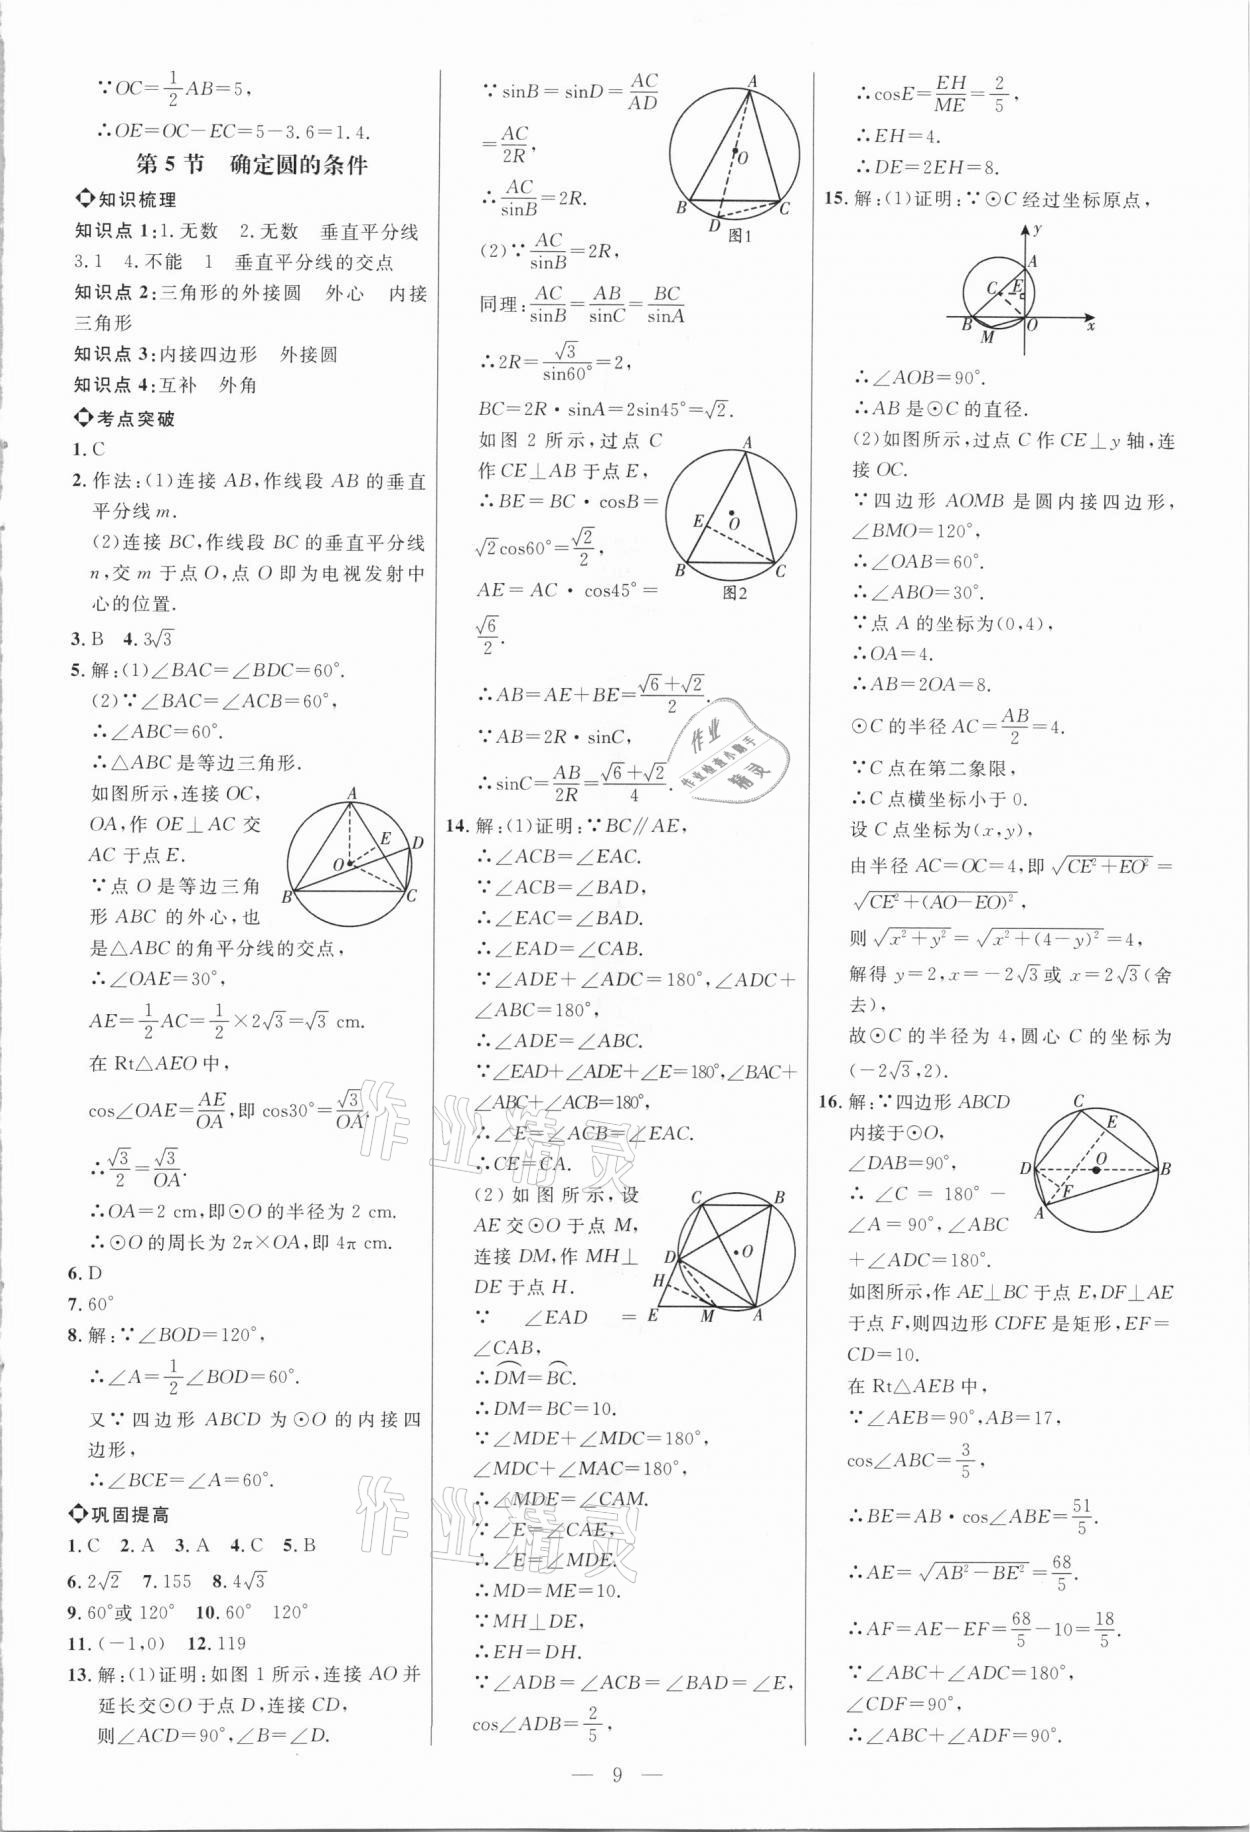 ∵OC=1/2 AB=5,
∴OE=OC-EC=5-3.6=1.4.
第5节 确定圆的条件
知识梳理
知识点1:1.无数 2.无数 垂直平分线
3.1 4.不能 1 垂直平分线的交点
知识点2:三角形的外接圆 外心 内接
三角形
知识点3:内接四边形 外接圆
知识点4:互补 外角
考点突破
1.C
2.作法:(1)连接AB,作线段AB的垂直
平分线m.
(2)连接BC,作线段BC的垂直平分线
n,交m于点O,点O即为电视发射中
心的位置.
3.B 4.3√3
5.解:(1)∠BAC=∠BDC=60°.
(2)∵∠BAC=∠ACB=60°,
∴∠ABC=60°.
∴△ABC是等边三角形.
如图所示,连接OC,
OA,作OE⊥AC交
AC于点E.
∵点O是等边三角
形ABC的外心,也
是△ABC的角平分线的交点,
∴∠OAE=30°,
AE=1/2 AC=1/2×2√3=√3 cm.
在Rt△AEO中,
cos∠OAE=AE/OA,即cos30°=√3/OA,
∴√3/2=√3/OA.
∴OA=2 cm,即⊙O的半径为2 cm.
∴⊙O的周长为2π×OA,即4π cm.
6.D
7.60°
8.解:∵∠BOD=120°,
∴∠A=1/2∠BOD=60°.
又∵四边形ABCD为⊙O的内接四
边形,
∴∠BCE=∠A=60°.
巩固提高
1.C 2.A 3.A 4.C 5.B
6.2√2 7.155 8.4√3
9.60°或120° 10.60° 120°
11.(-1,0) 12.119
13.解:(1)证明:如图1所示,连接AO并
延长交⊙O于点D,连接CD,
则∠ACD=90°,∠B=∠D.
∵sinB=sinD=AC/AD
=AC/2R,
∴AC/sinB=2R.
A
O
B
D
C
图1
(2)∵AC/sinB=2R,
同理:AC/sinB=AB/sinC=BC/sinA
∴2R=√3/sin60°=2,
BC=2R·sinA=2sin45°=√2.
如图2所示,过点C
作CE⊥AB于点E,
∴BE=BC·cosB=
√2cos60°=√2/2,
AE=AC·cos45°=
√6/2.
A
E
O
B
C
图2
∴AB=AE+BE=(√6+√2)/2.
∵AB=2R·sinC,
∴sinC=AB/2R=(√6+√2)/4.
14.解:(1)证明:∵BC∥AE,
∴∠ACB=∠EAC.
∵∠ACB=∠BAD,
∴∠EAC=∠BAD.
∴∠EAD=∠CAB.
∵∠ADE+∠ADC=180°,∠ADC+
∠ABC=180°,
∴∠ADE=∠ABC.
∵∠EAD+∠ADE+∠E=180°,∠BAC+
∠ABC+∠ACB=180°,
∴∠E=∠ACB=∠EAC.
∴CE=CA.
(2)如图所示,设
AE交⊙O于点M,
连接DM,作MH⊥
DE于点H.
∵ ∠EAD =
∠CAB,
∴DM⌒=BC⌒.
∴DM=BC=10.
∵∠MDE+∠MDC=180°,
∠MDC+∠MAC=180°,
∴∠MDE=∠CAM.
∵∠E=∠CAE,
∴∠E=∠MDE.
∴MD=ME=10.
∵MH⊥DE,
∴EH=DH.
∵∠ADB=∠ACB=∠BAD=∠E,
cos∠ADB=2/5,
∴cosE=EH/ME=2/5,
∴EH=4.
∴DE=2EH=8.
15.解:(1)证明:∵⊙C经过坐标原点,
y
A
C
E
B
O
M
x
∴∠AOB=90°.
∴AB是⊙C的直径.
(2)如图所示,过点C作CE⊥y轴,连
接OC.
∵四边形AOMB是圆内接四边形,
∠BMO=120°,
∴∠OAB=60°.
∴∠ABO=30°.
∵点A的坐标为(0,4),
∴OA=4.
∴AB=2OA=8.
⊙C的半径AC=AB/2=4.
∵C点在第二象限,
∴C点横坐标小于0.
设C点坐标为(x,y),
由半径AC=OC=4,即√(CE²+EO²)=
√(CE²+(AO-EO)²),
则√(x²+y²)=√(x²+(4-y)²)=4,
解得y=2,x=-2√3或x=2√3(舍
去),
故⊙C的半径为4,圆心C的坐标为
(-2√3,2).
16.解:∵四边形ABCD
内接于⊙O,
∠DAB=90°,
∴∠C=180°-
∠A=90°,∠ABC
+∠ADC=180°.
如图所示,作AE⊥BC于点E,DF⊥AE
于点F,则四边形CDFE是矩形,EF=
CD=10.
在Rt△AEB中,
∵∠AEB=90°,AB=17,
cos∠ABC=3/5,
∴BE=AB·cos∠ABE=51/5.
∴AE=√(AB²-BE²)=68/5.
∴AF=AE-EF=68/5-10=18/5.
∵∠ABC+∠ADC=180°,
∠CDF=90°,
∴∠ABC+∠ADF=90°.
— 9 —
作业
作业检查小助手
精灵
作业精灵
作业精灵